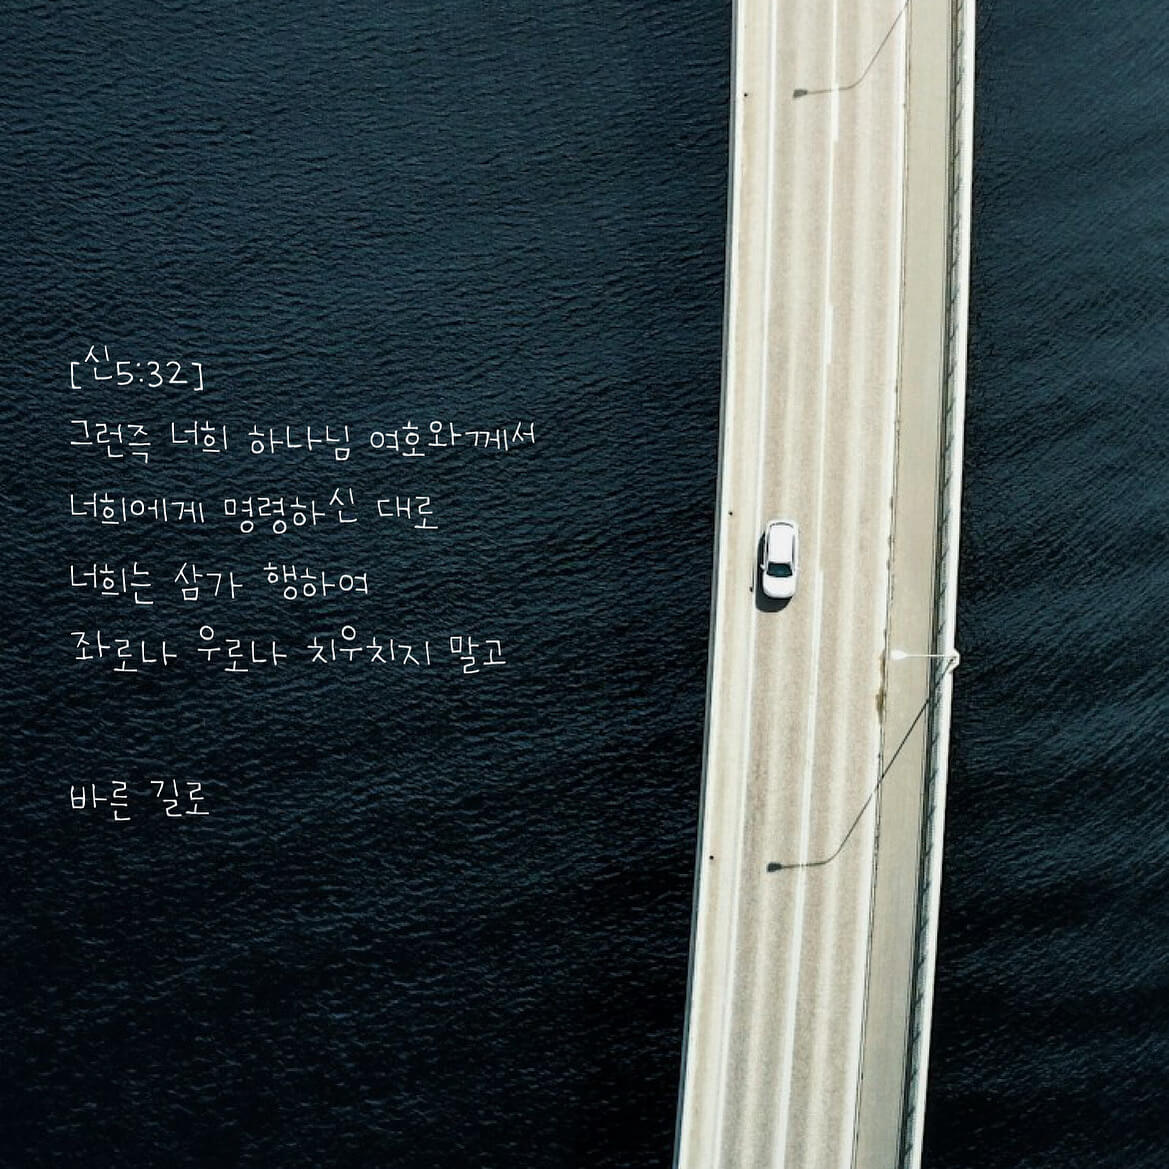 [신5:32]
그런즉 너희 하나님 여호와께서
너희에게 명령하신 대로
너희는 삼가 행하여
좌로나 우로나 치우치지 말고
바른 길로